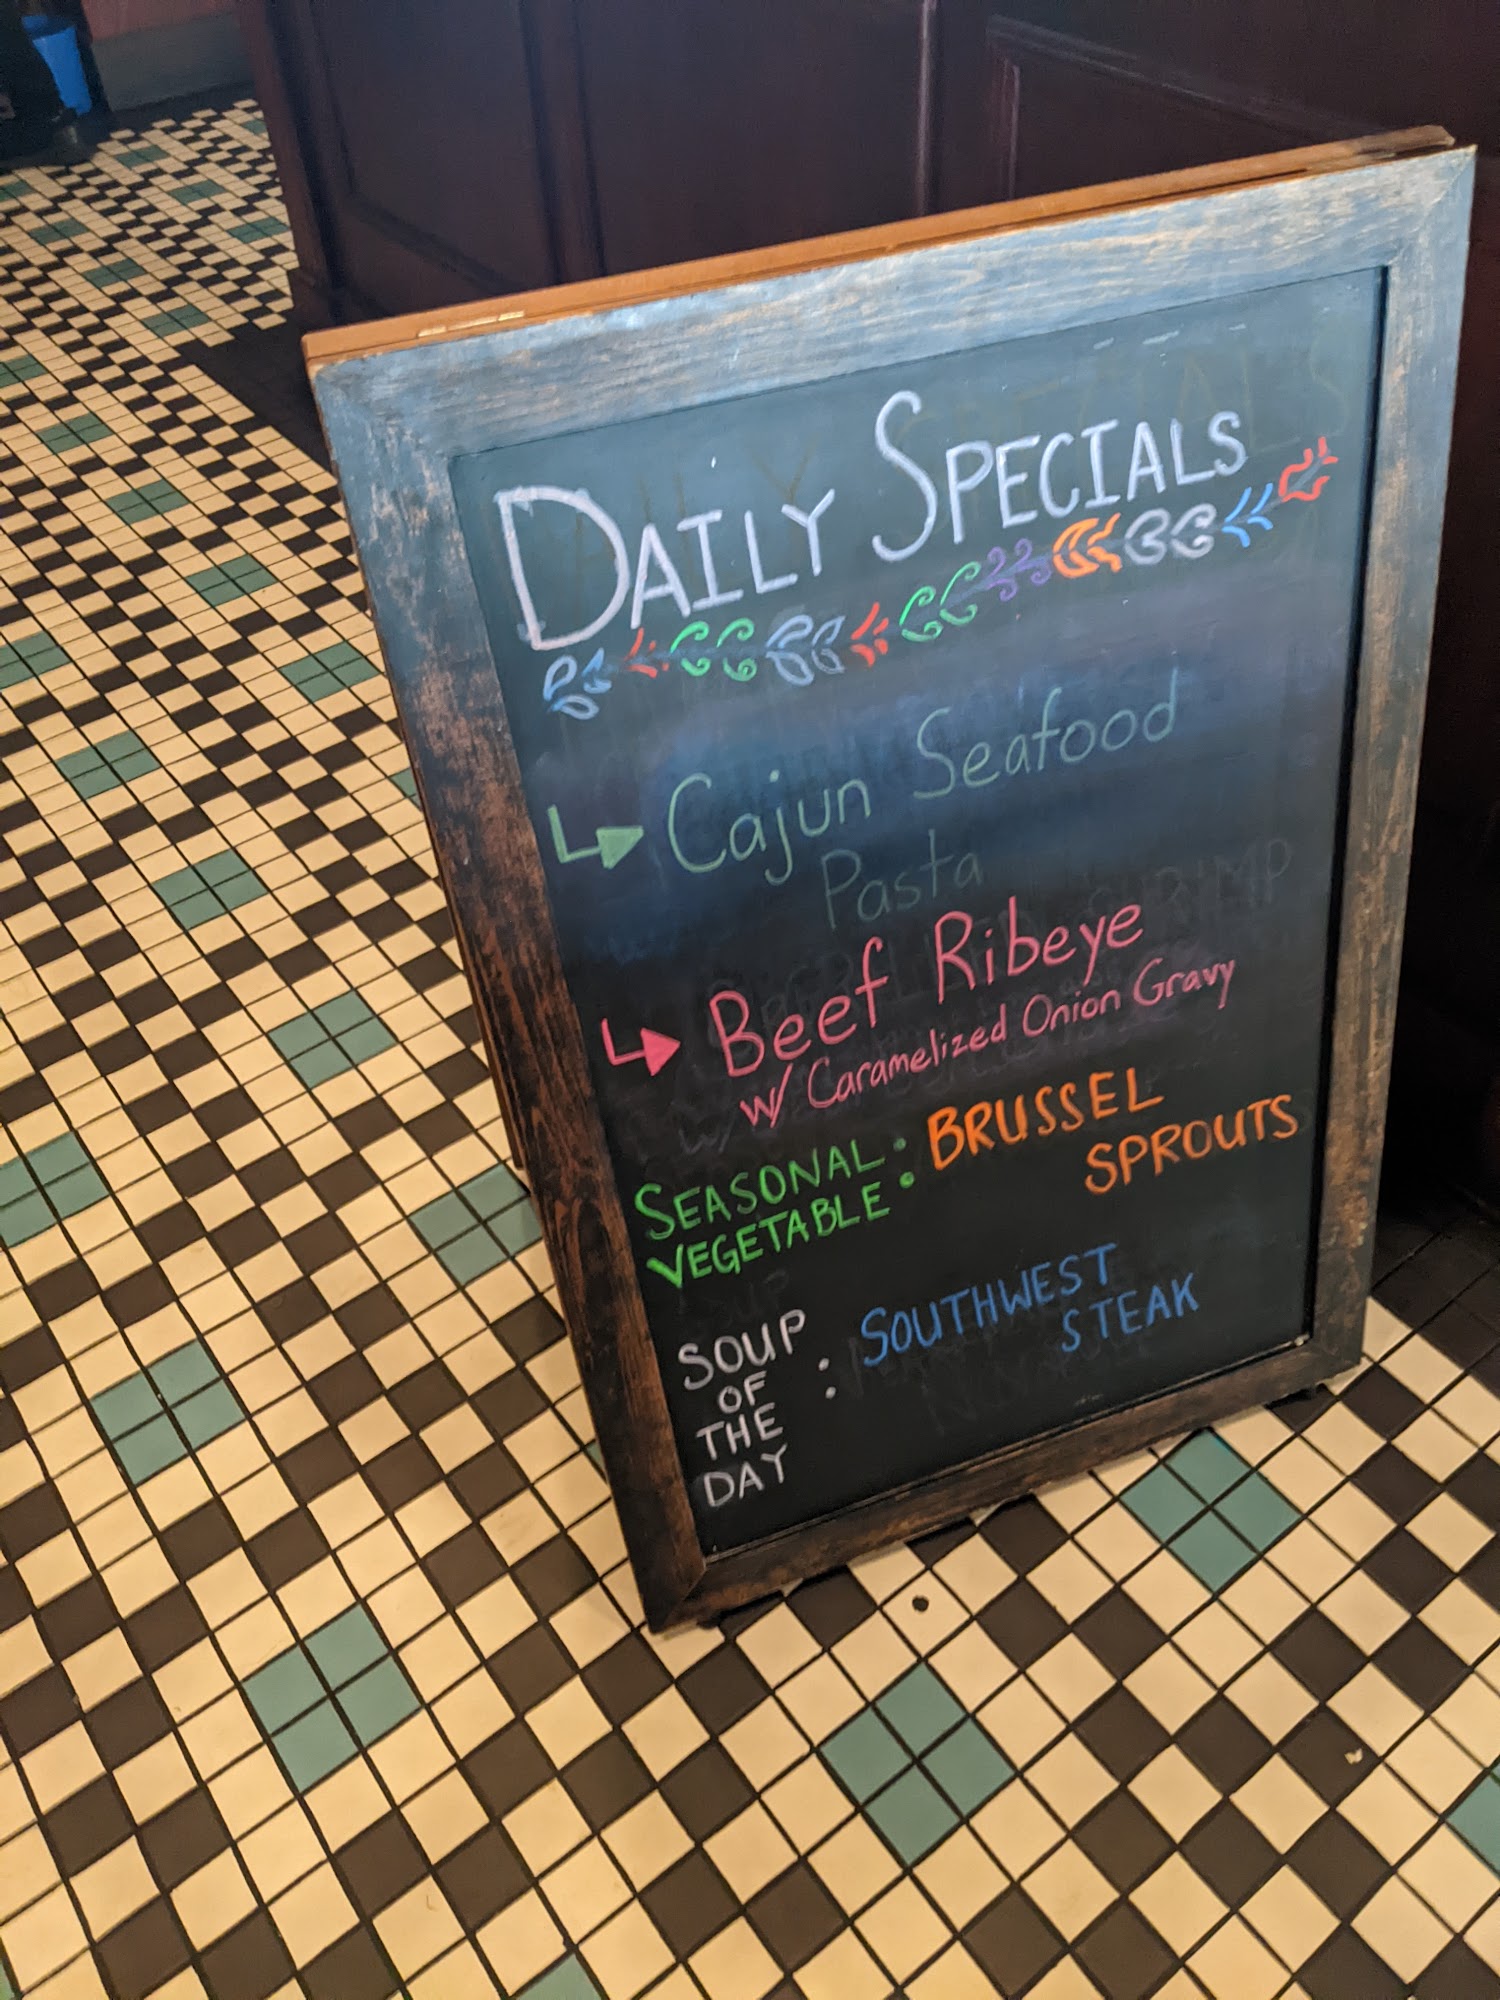 DAILY SPECIALS
Cajun Seafood
Pasta
Beef Ribeye
w/ Caramelized Onion Gravy
SEASONAL : BRUSSEL
VEGETABLE SPROUTS
SOUP : SOUTHWEST
OF STEAK
THE
DAY